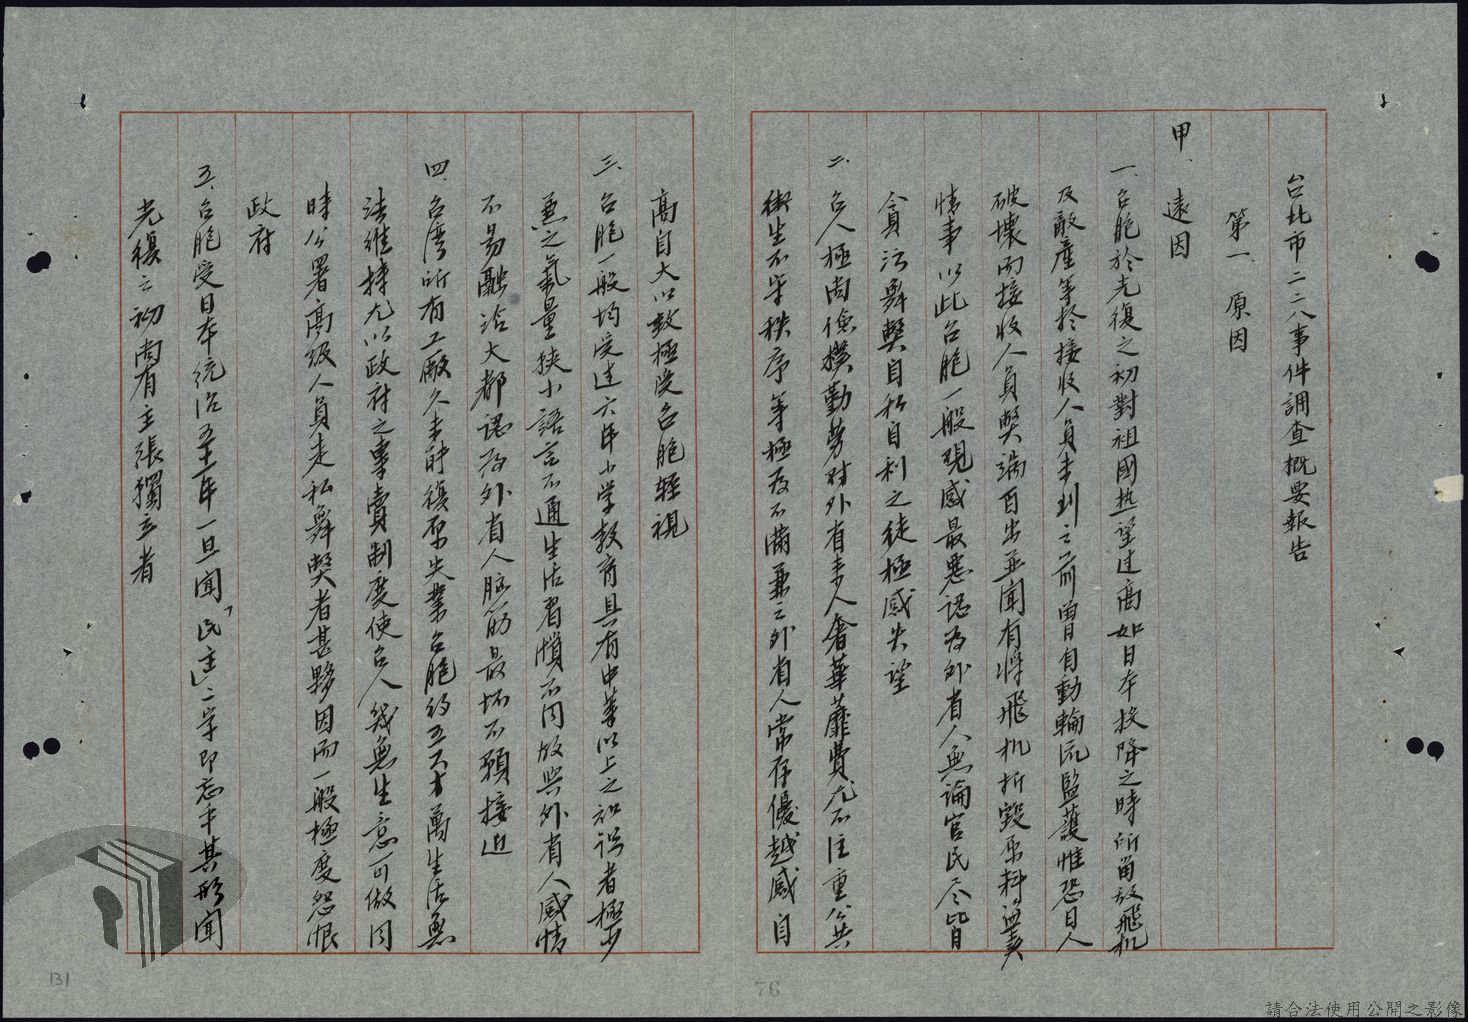 台北市二二八事件調查概要報告
第一、原因
甲、遠因
一、台胞於光復之初對祖國热望过高如日本投降之時所留放飛机
及敵產等於接收人員未到之前曾自動輪流監護惟恐日人
破壞而接收人員弊端百出並聞有將飛机折毀原料盜賣
情事以此台胞一般觀感最惡認為外省人無論官民尽皆
貪污舞弊自私自利之徒極感失望
二、台人極尚儉樸勤勞对外省来人奢華靡費尤不注重公共
衛生不守秩序等極為不滿兼之外省人常存優越感自
高自大以致極受台胞輕視
三、台胞一般均受过六年小学教育具有中等以上之知识者極少
兼之氣量狹小語言不通生活習慣不同故與外省人感情
不易融洽大都認為外省人腦筋最坏不願接近
四、台湾所有工廠久未能復原失業台胞約五六十萬生活無
法維持尤以政府之專賣制度使台人幾無生意可做同
時公署高级人員走私舞弊者甚夥因而一般極度怨恨
政府
五、台胞受日本統治五十一年一旦聞「民主」二字即忘乎其形聞
光復之初尚有主張獨立者
131
76
請合法使用公開之影像